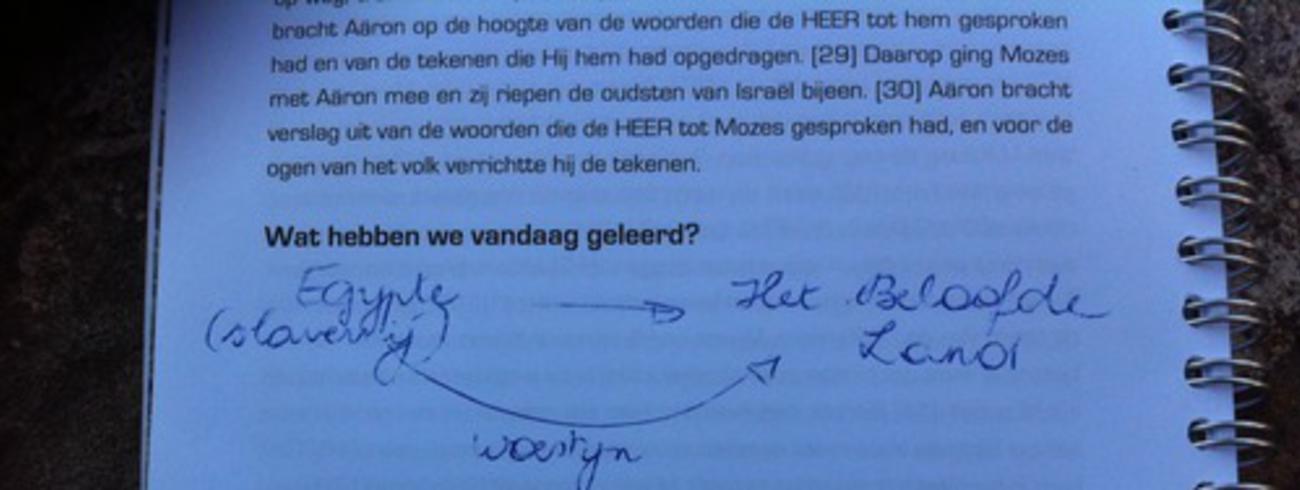 bracht Aäron op de hoogte van de woorden die de HEER tot hem gesproken
had en van de tekenen die Hij hem had opgedragen. [29] Daarop ging Mozes
met Aäron mee en zij riepen de oudsten van Israël bijeen. [30] Aäron bracht
verslag uit van de woorden die de HEER tot Mozes gesproken had, en voor de
ogen van het volk verrichtte hij de tekenen.
Wat hebben we vandaag geleerd?
Egypte → Het Beloofde
(slavernij) Land
woestyn